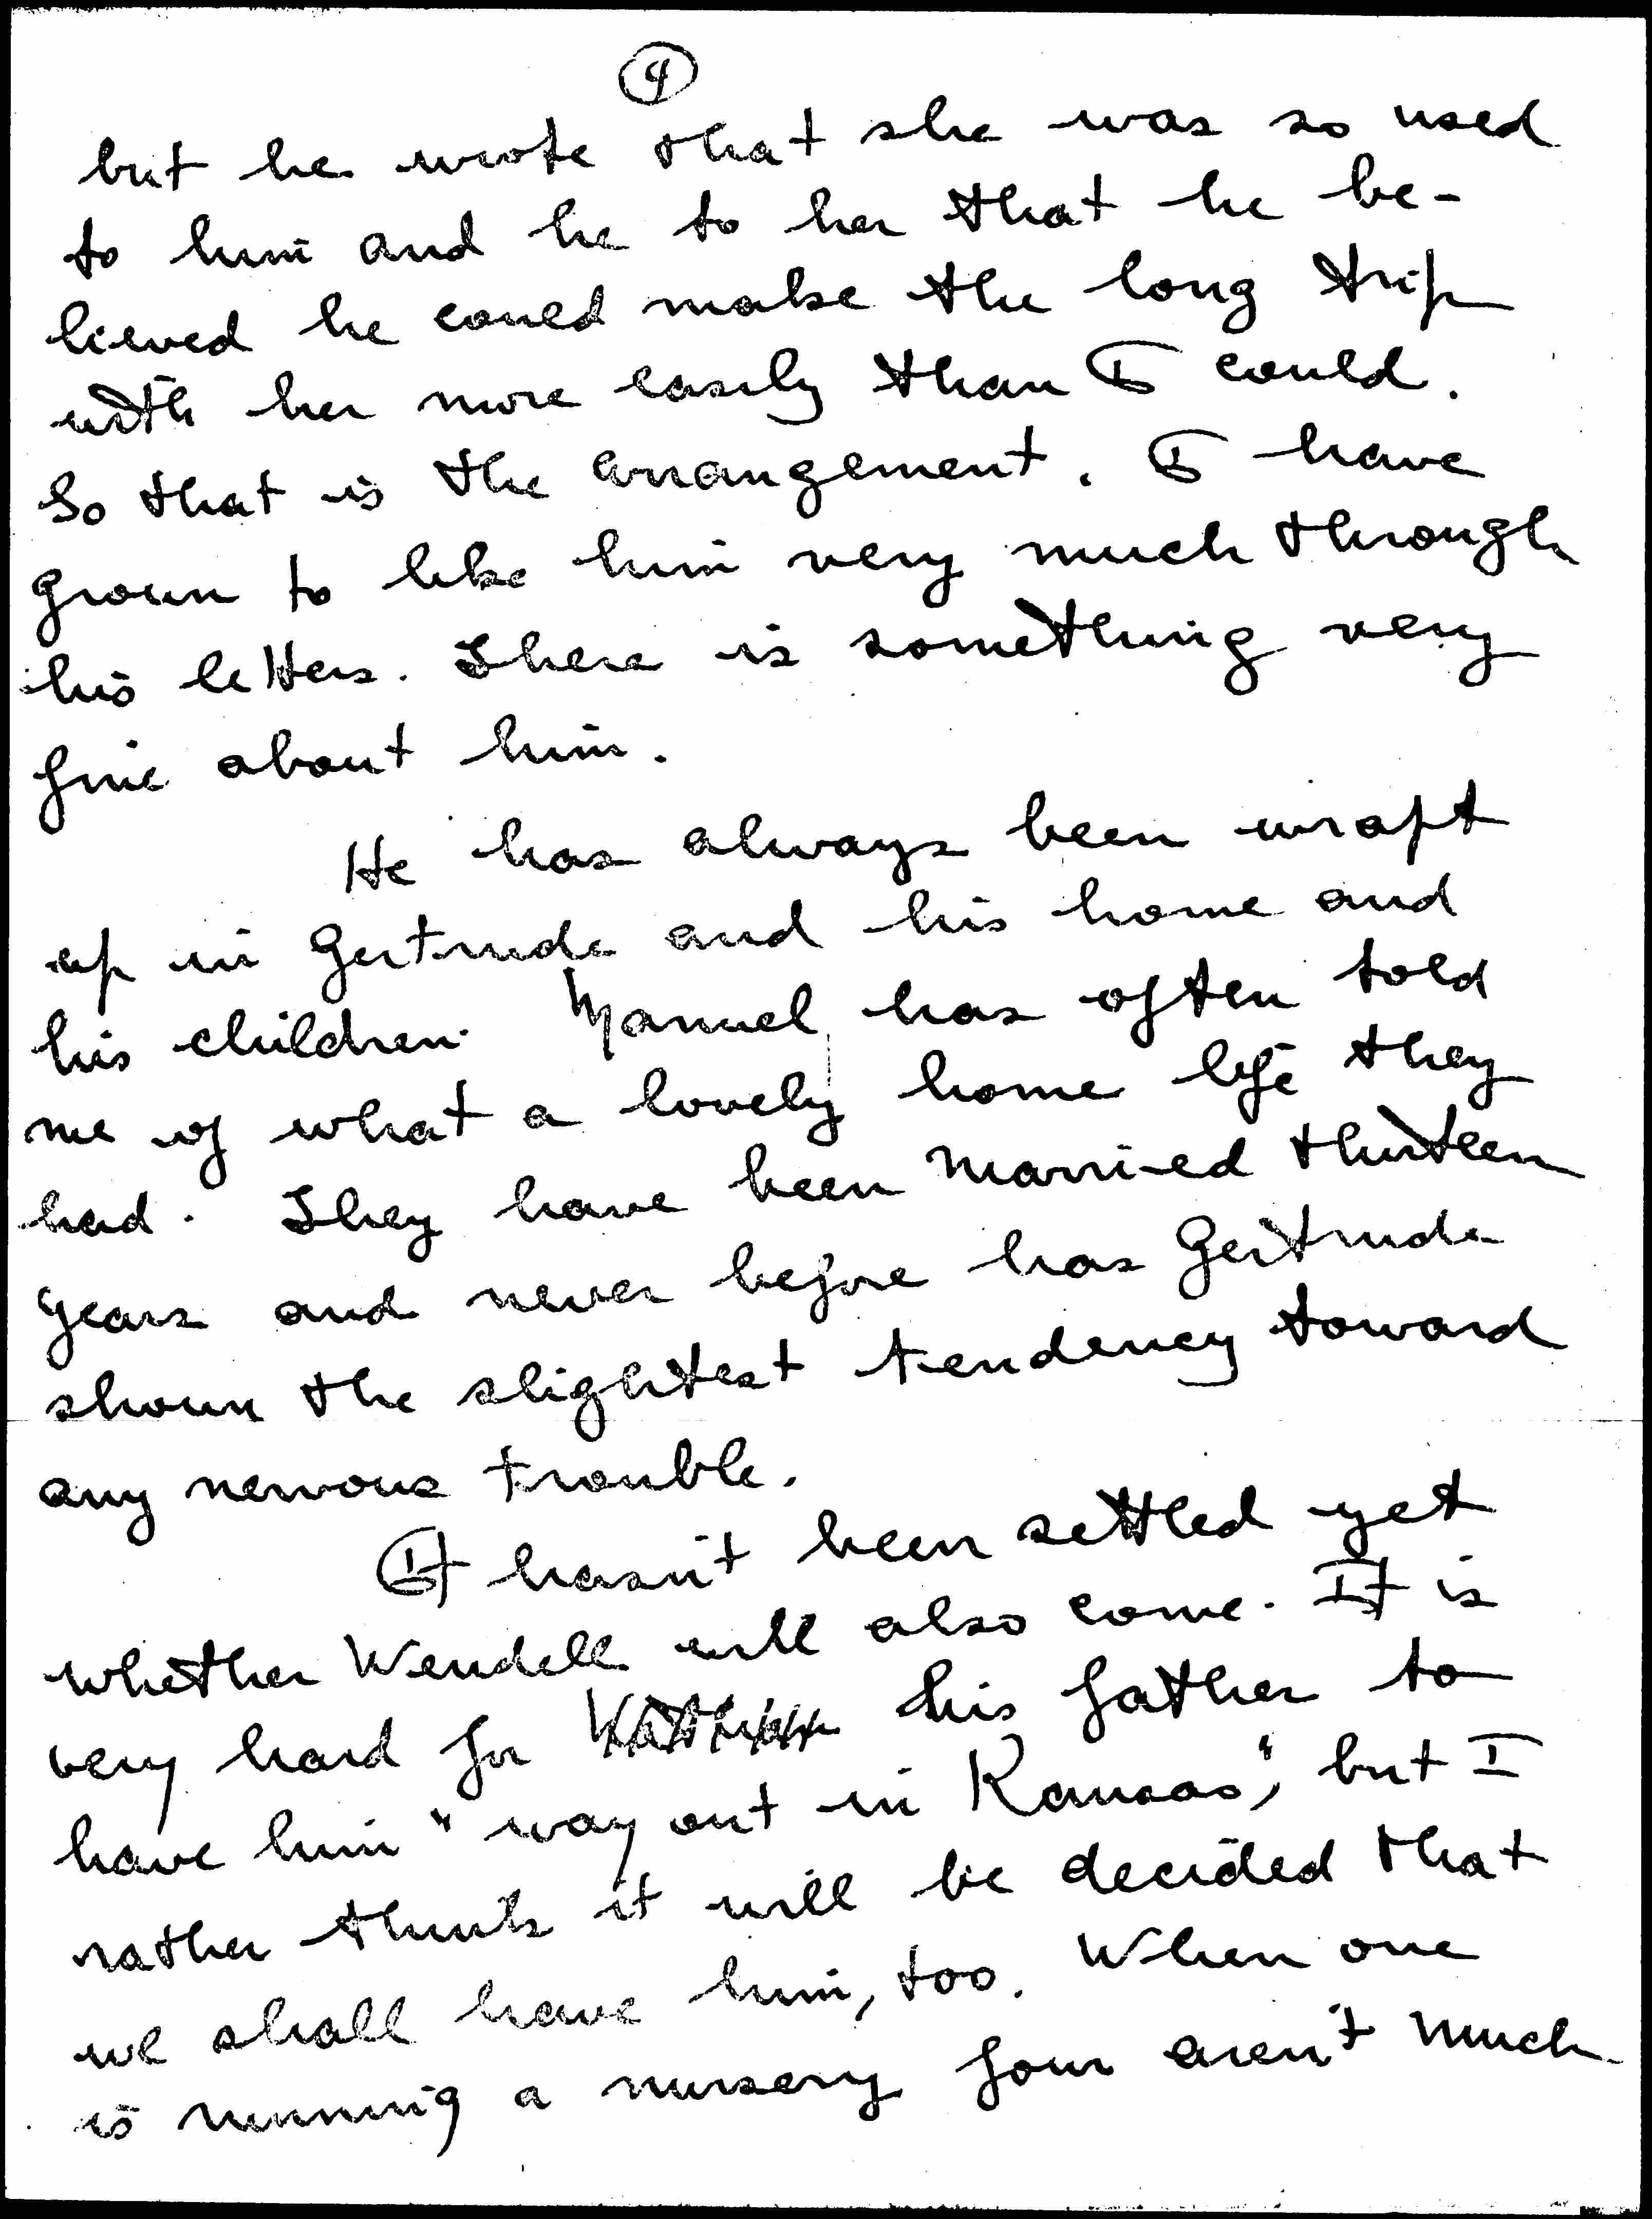 4
but he wrote that she was so used
to him and he to her that he be-
lieved he could make the long trip
with her more easily than I could.
So that is the arrangement. I have
grown to like him very much through
his letters. There is something very
fine about him.
He has always been wrapt
up in Gertrude and his home and
his children. Manuel has often told
me of what a lovely home life they
had. They have been married thirteen
years and never before has Gertrude
shown the slightest tendency toward
any nervous trouble.
It hasn't been settled yet
whether Wendell will also come. It is
very hard for his father to
have him "way out in Kansas", but I
rather think it will be decided that
we shall have him, too. When one
is running a nursery four aren't much